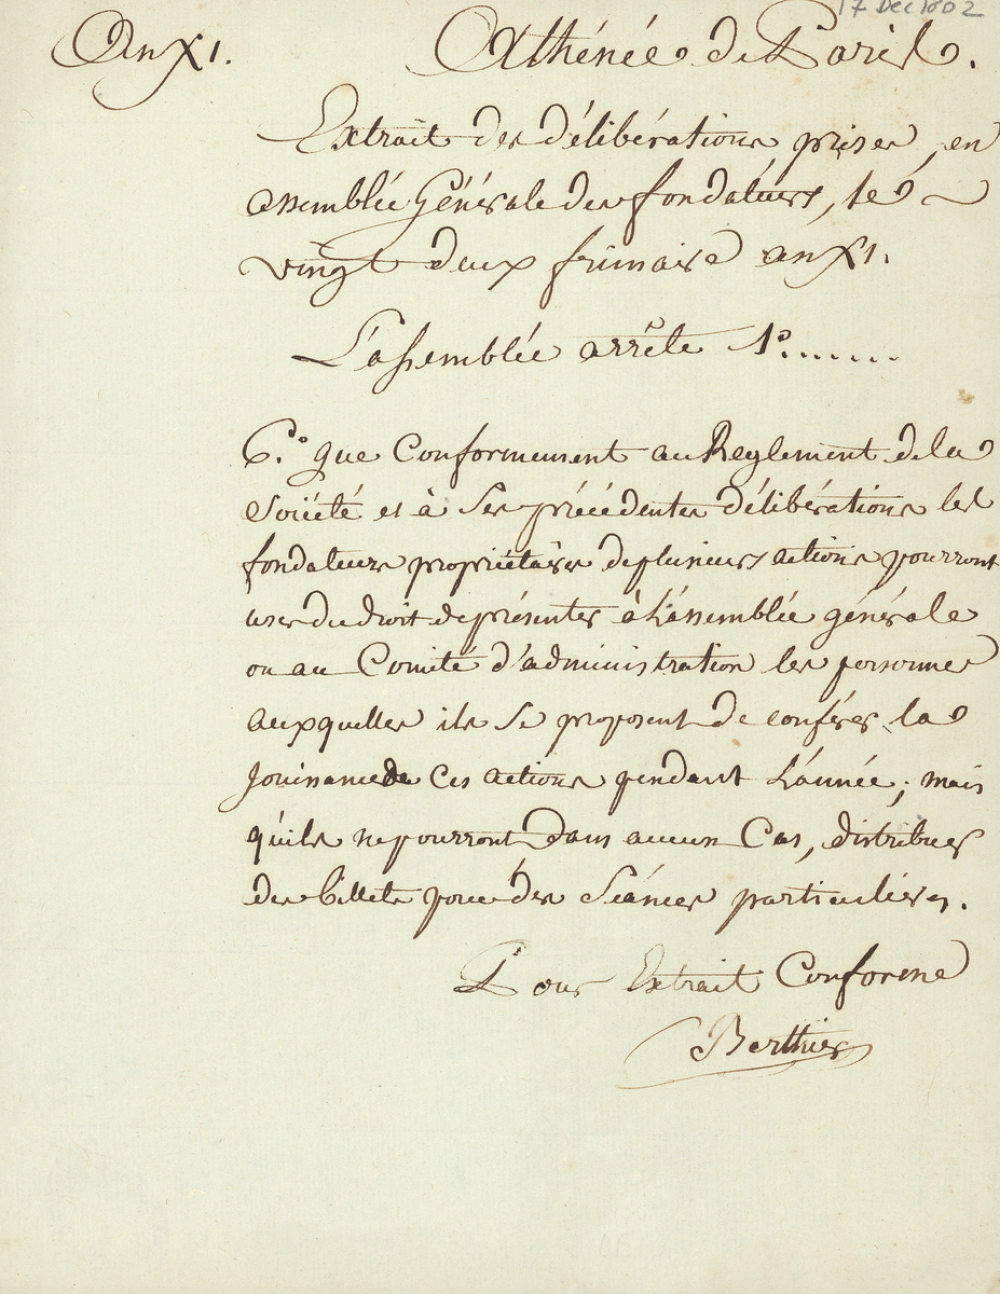 17 Dec 1802
An XI.
Athénée de Paris.
Extrait des délibérations prises, en
assemblée Générale des fondateurs, le
vingt deux frimaire an XI.
L'assemblée arrête 1°.......
6.° que Conformement au Reglement de la
Société et à Ses précédentes délibérations les
fondateurs propriétaires de plusieurs actions pourront
user du droit de présenter à L'assemblée générale
ou au Comité d'administration les personnes
auxquelles ils Se proposent de conférer la
Jouissance de Ces actions pendant L'année; mais
qu'ils ne pourront dans aucun Cas, distribuer
des billets pour des Séances particulières.
Pour Extrait Conforme
Berthier